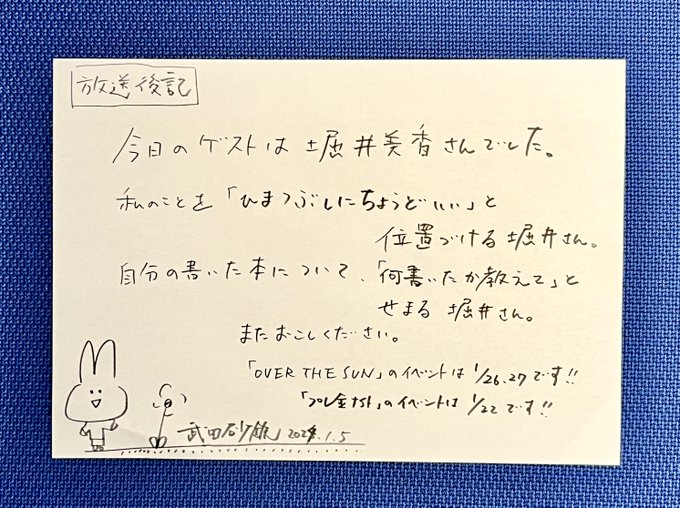 放送後記
今日のゲストは 堀井美香さんでした。
私のことを「ひまつぶしにちょうどいい」と
位置づける堀井さん。
自分の書いた本について、「何書いたか教えて」と
せまる 堀井さん。
またおこしください。
「OVER THE SUN」のイベントは 1/26.27です!!
「プレ金ナイト」のイベントは 1/22です!!
武田砂鉄 2024.1.5